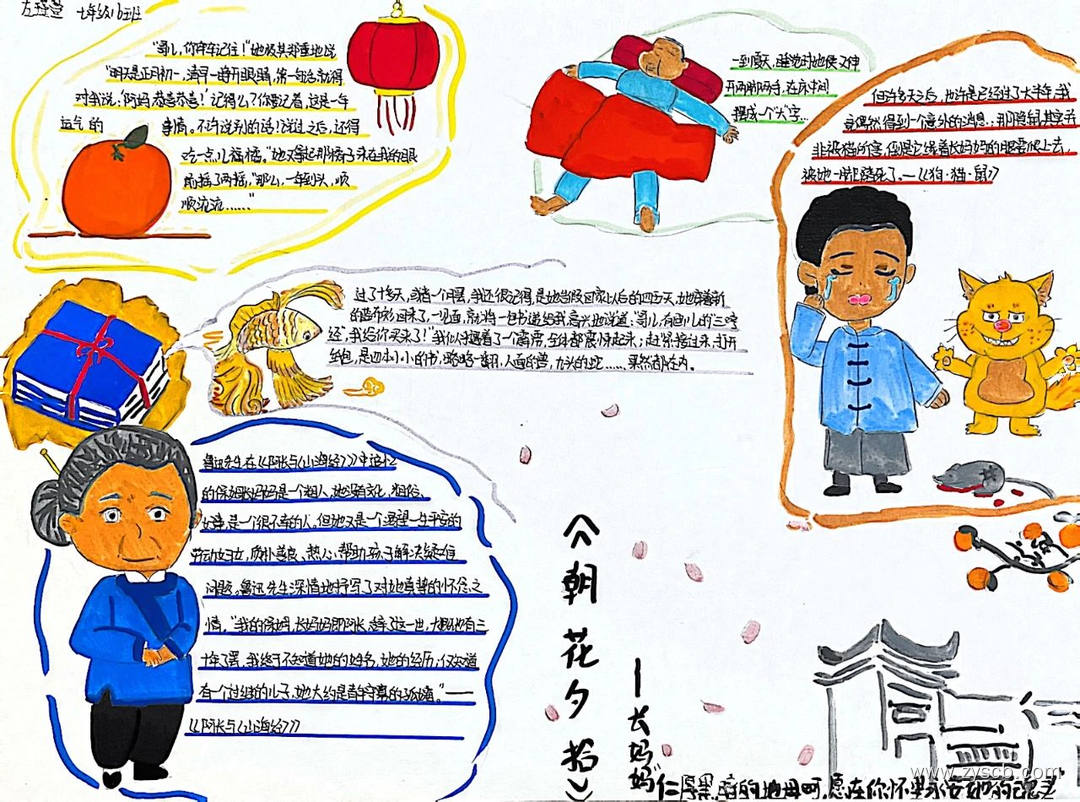 七年级16班
"哥儿,你牢牢记住!"她极其郑重地说
"明天是正月初一,清早一睁开眼睛,第一句话就得
对我说:'阿妈,恭喜恭喜!'记得么?你要记着,这是一年
运气的 事情。不许说别的话!说过之后,还得
吃一点儿福橘。"她又拿起那橘子来在我的眼
前摇了两摇,"那么,一年到头,顺
顺流流……"
一到夏天,睡觉时她便又伸
开两脚两手,在床中间
摆成一个大字…
但许多天之后,也许是已经过了大半年,我
竟偶然得到一个意外的消息:那隐鼠其实并
非被猫所害,倒是它缘着长妈妈的腿要爬上去,
被她一脚踏死了。——《狗·猫·鼠》
过了十多天,或者一个月罢,我还很记得,是她告假回家以后的四五天,她穿着新
的蓝布衫回来了,一见面,就将一包书递给我,高兴地说道:"哥儿,有画儿的'三哼
经',我给你买来了!"我似乎遇着了一个霹雳,全体都震悚起来;赶紧去接过来,打开
纸包,是四本小小的书,略略一翻,人面的兽,九头的蛇……,果然都在内。
鲁迅先生在《阿长与《山海经》》中
的保姆长妈妈是一个粗人,她没有文化,粗俗、
好事,是一个很不幸的人。但她又是一个渴望一生平安的
劳动妇女,质朴善良、热心,帮助孩子解决疑难
问题。鲁迅先生深情地抒写了对她真挚的怀念之
情,"我的保姆,长妈妈即阿长,辞了这一世,大概也有三
十年了罢。我终于不知道她的姓名,她的经历;仅知道
有一个过继的儿子,她大约是青年守寡的孤孀。"——
《阿长与《山海经》》
《朝花夕拾》
—长妈妈
"仁厚黑暗的地母呵,愿在你怀里永安她的魂灵
www.zyscb.com